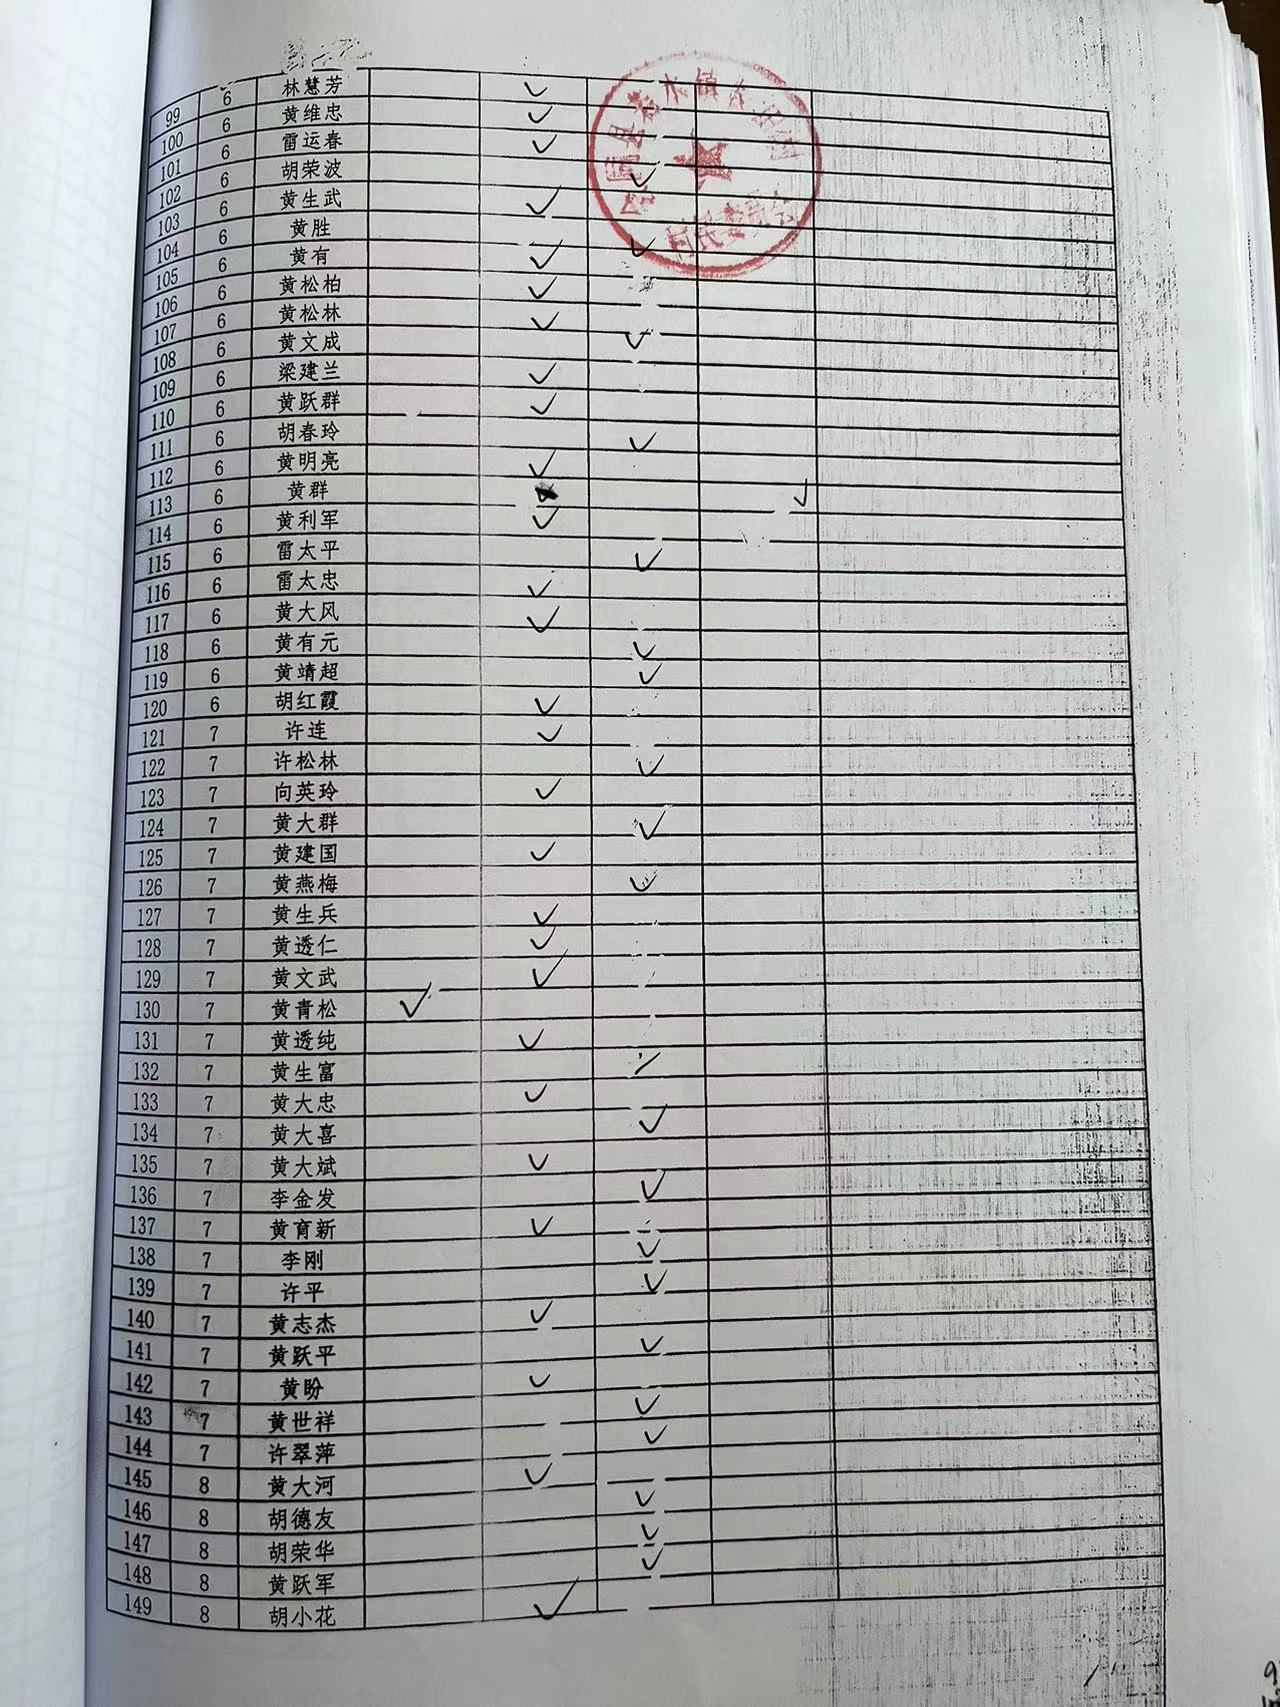 99 6 林慧芳
100 6 黄维忠
101 6 雷运春
102 6 胡荣波
103 6 黄生武
104 6 黄胜
105 6 黄有
106 6 黄松柏
107 6 黄松林
108 6 黄文成
109 6 梁建兰
110 6 黄跃群
111 6 胡春玲
112 6 黄明亮
113 6 黄群
114 6 黄利军
115 6 雷太平
116 6 雷太忠
117 6 黄大风
118 6 黄有元
119 6 黄靖超
120 6 胡红霞
121 7 许连
122 7 许松林
123 7 向英玲
124 7 黄大群
125 7 黄建国
126 7 黄燕梅
127 7 黄生兵
128 7 黄透仁
129 7 黄文武
130 7 黄青松
131 7 黄透纯
132 7 黄生富
133 7 黄大忠
134 7 黄大喜
135 7 黄大斌
136 7 李金发
137 7 黄育新
138 7 李刚
139 7 许平
140 7 黄志杰
141 7 黄跃平
142 7 黄盼
143 7 黄世祥
144 7 许翠萍
145 8 黄大河
146 8 胡德友
147 8 胡荣华
148 8 黄跃军
149 8 胡小花
村民委员会